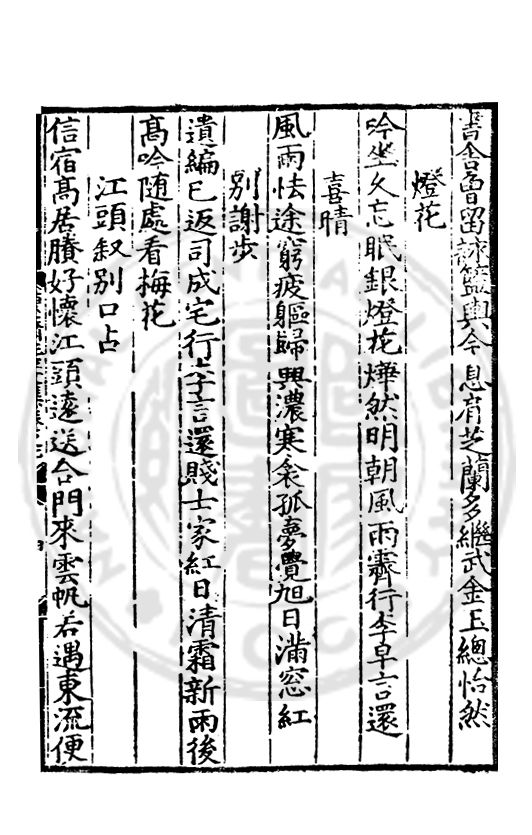 書舎曽留諒簋輿今息肩芝蘭多繼武金玉總怡然
燈花
吟坐久忘眠銀燈花燁然明朝風雨霽行李早言還
喜晴
風雨怯途窮疲軀歸興濃寒衾孤夢覺旭日滿窓紅
别謝步
遺編已返司成宅行李言還賤士家紅日清霜新雨後
髙吟随處看梅花
江頭叙别口占
信宿髙居賸好懷江頭遠送合門來雲帆若遇東流便